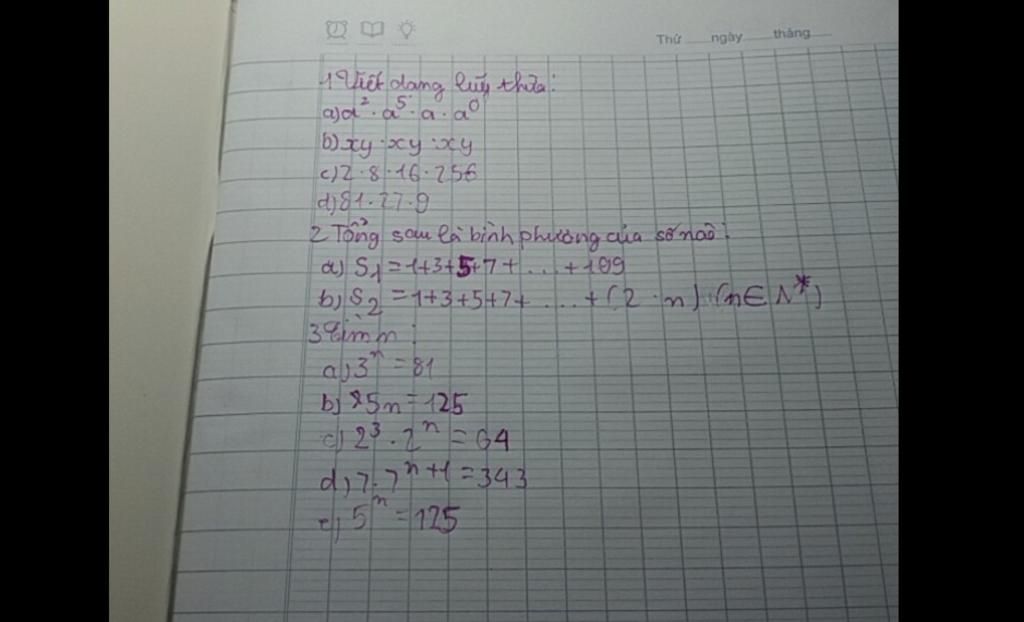 Thứ ngày tháng
1 Viết dạng lũy thừa:
a) a² · a⁵ · a · a⁰
b) xy · xy · xy
c) 2 · 8 · 16 · 256
d) 81 · 27 · 9
2 Tổng sau là bình phương của số nào:
a) S₁ = 1+3+5+7+ ... +109
b) S₂ = 1+3+5+7+ ... +(2 · n) (n ∈ N*)
3 Tìm n:
a) 3ⁿ = 81
b) 25n = 125
c) 2³ · 2ⁿ = 64
d) 7 · 7ⁿ⁺¹ = 343
e) 5ⁿ = 125